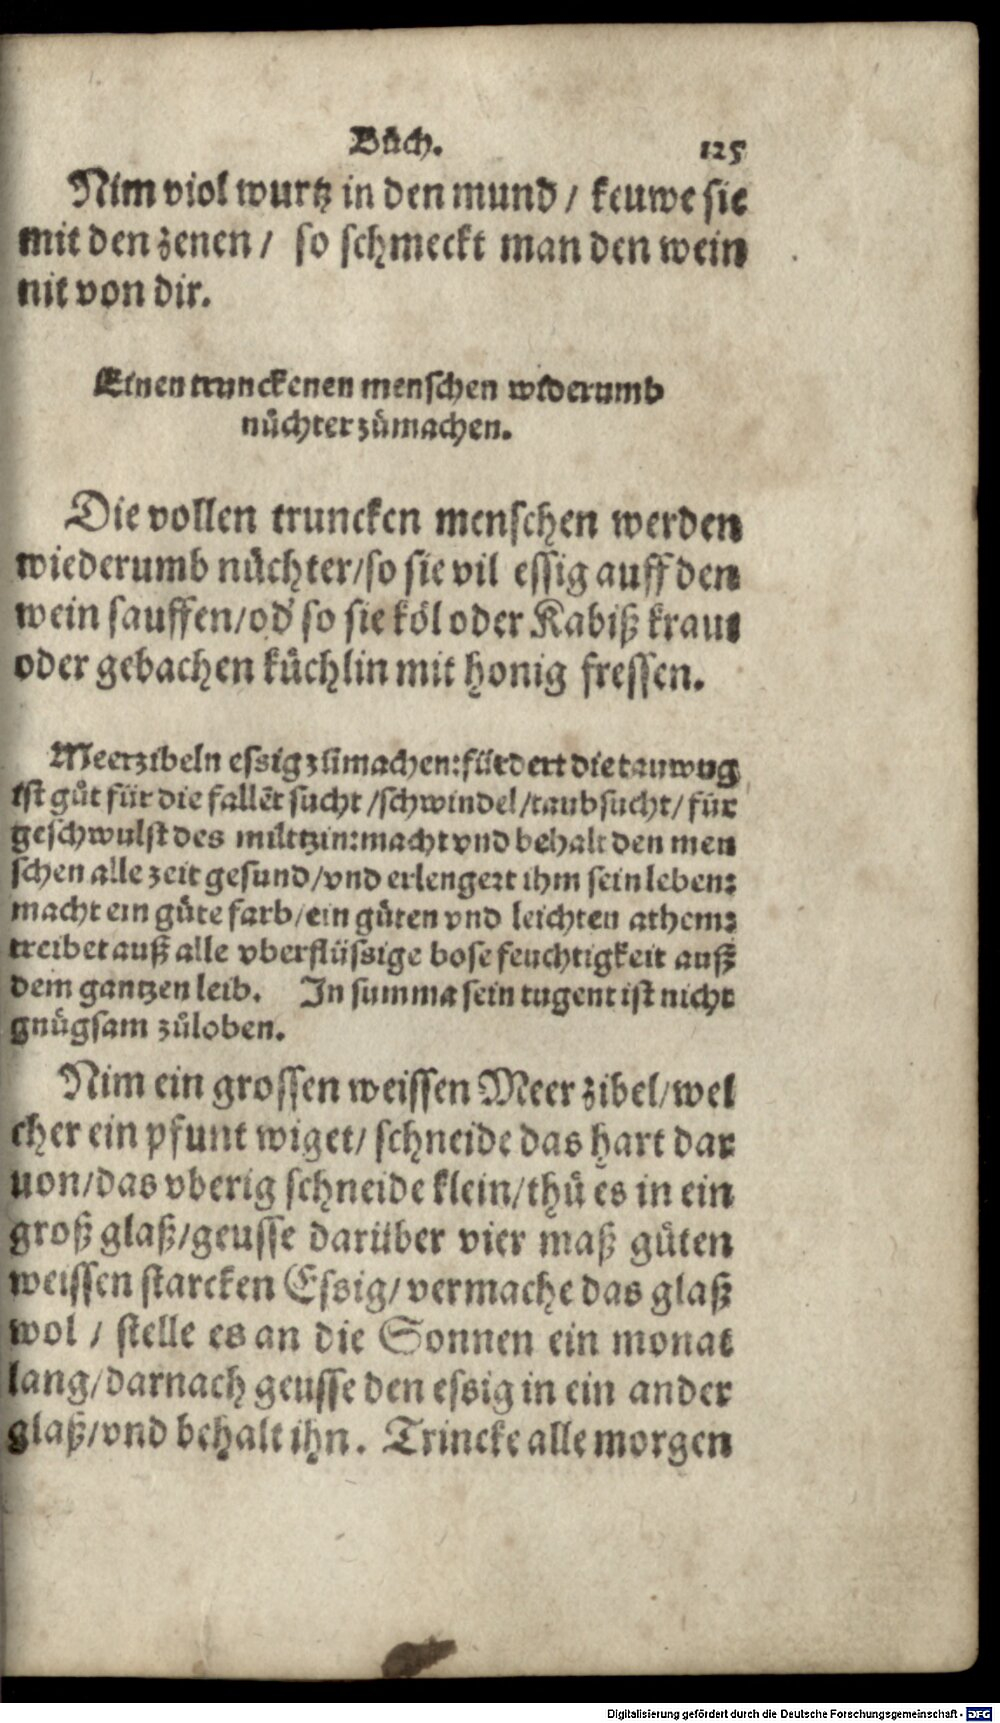 Bůch. 125
Nim viol wurtz in den mund / keuwe sie
mit den zenen / so schmeckt man den wein
nit von dir.
Einen trunckenen menschen widerumb
nůchter zůmachen.
Die vollen truncken menschen werden
wiederumb nůchter/so sie vil essig auff den
wein sauffen/od' so sie köl oder Kabiß kraut
oder gebachen küchlin mit honig fressen.
Meerzibeln essig zůmachen: fürdert die tauwug
ist gůt für die fallēt sucht /schwindel/taubsucht/ für
geschwulst des miltzin: macht vnd behalt den men
schen alle zeit gesund/vnd erlengert ihm sein leben:
macht ein gůte farb/ein gůten vnd leichten athem:
treibet auß alle vberflüssige bose feuchtigkeit auß
dem gantzen leib. In summa sein tugent ist nicht
gnůgsam zůloben.
Nim ein grossen weissen Meer zibel/wel
cher ein pfunt wiget/ schneide das hart dar
uon/das vberig schneide klein/thů es in ein
groß glaß/geusse darüber vier maß gůten
weissen starcken Essig/ vermache das glaß
wol / stelle es an die Sonnen ein monat
lang/darnach geusse den essig in ein ander
glaß/vnd behalt ihn. Trincke alle morgen
Digitalisierung gefördert durch die Deutsche Forschungsgemeinschaft - DFG